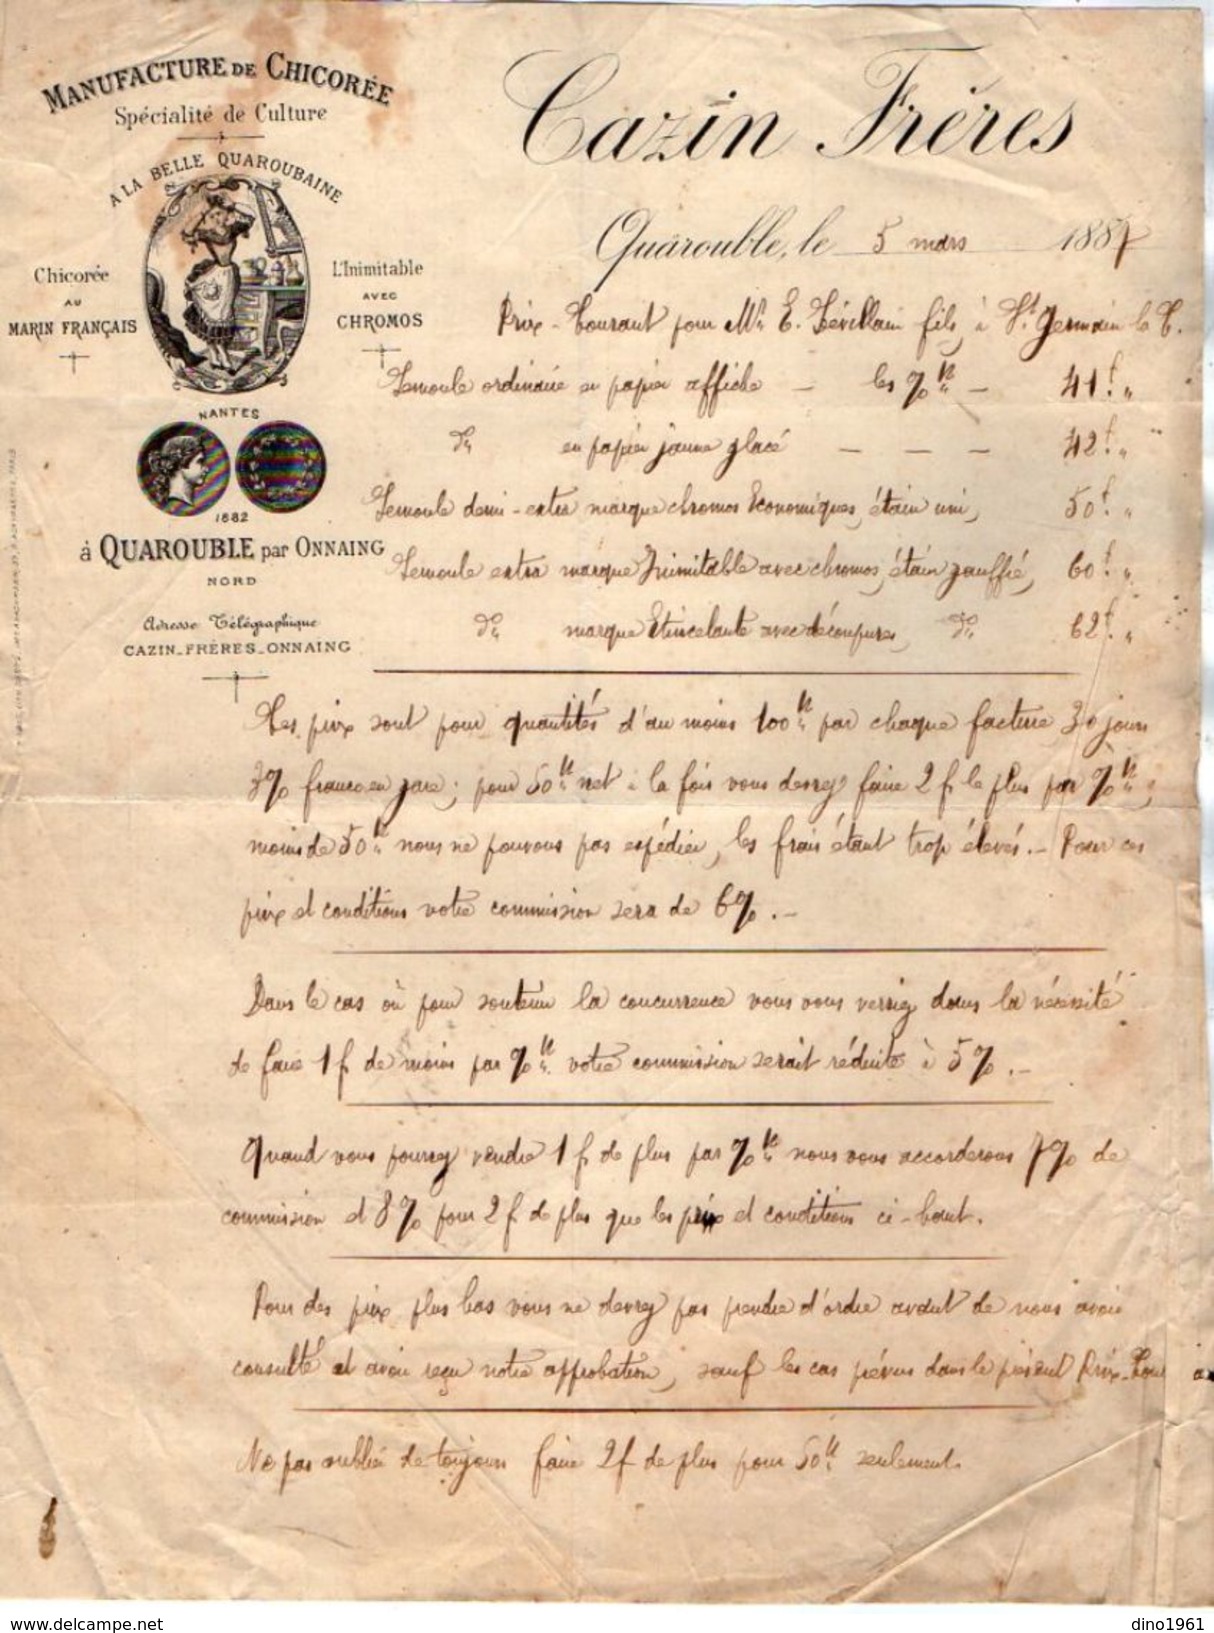 MANUFACTURE DE CHICORÉE
Spécialité de Culture
A LA BELLE QUAROUBAINE
Chicorée
AU
MARIN FRANÇAIS
L'Inimitable
AVEC
CHROMOS
NANTES
1882
à QUAROUBLE par ONNAING
NORD
Adresse Télégraphique
CAZIN_FRÈRES_ONNAING
Cazin Frères
Quarouble, le 5 mars 1887
Prix-Courant pour Mr E. Lévillain fils, à St Germain le
Semoule ordinaire en papier affiche — les %k — 41f "
do en papier jaune glacé — — — 42f "
Semoule demi-extra marque chromos Economiques, étain uni, 50f "
Semoule extra marque Inimitable avec chromos, étain gauffré, 60f "
do marque Etincelante avec découpures, do 62f "
Les prix sont pour quantités d'au moins 100k par chaque facture, 30 jours
3% franco en gare; pour 50k net à la fois vous devrez faire 2f de plus par %k;
moins de 50k nous ne pouvons pas expédier, les frais étant trop élevés. — Pour ces
prix et conditions votre commission sera de 6%. —
Dans le cas où pour soutenir la concurrence vous vous verriez dans la nécessité
de faire 1f de moins par %k votre commission serait réduite à 5%. —
Quand vous pourrez vendre 1f de plus par %k nous vous accorderons 7% de
commission et 8% pour 2f de plus que les prix et conditions ci-haut.
Pour des prix plus bas vous ne devrez pas prendre d'ordre avant de nous avoir
consulté et avoir reçu notre approbation, sauf les cas prévus dans le présent Prix-Cour
Ne pas oublier de toujours faire 2f de plus pour 50k seulement.
dino1961